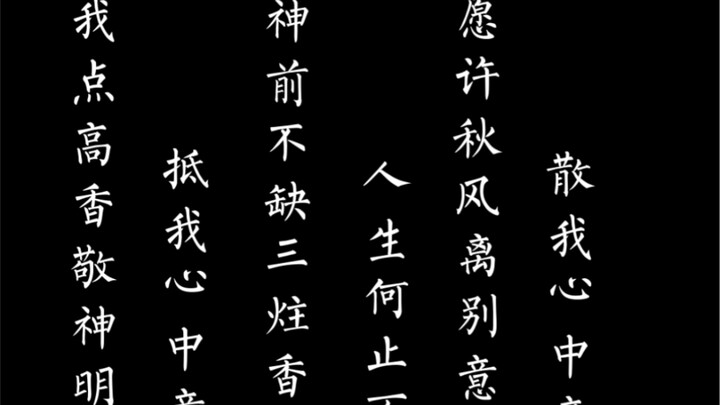 我点高香敬神明
抵我心中
神前不缺三炷香
人生何止
愿许秋风离别意
散我心中